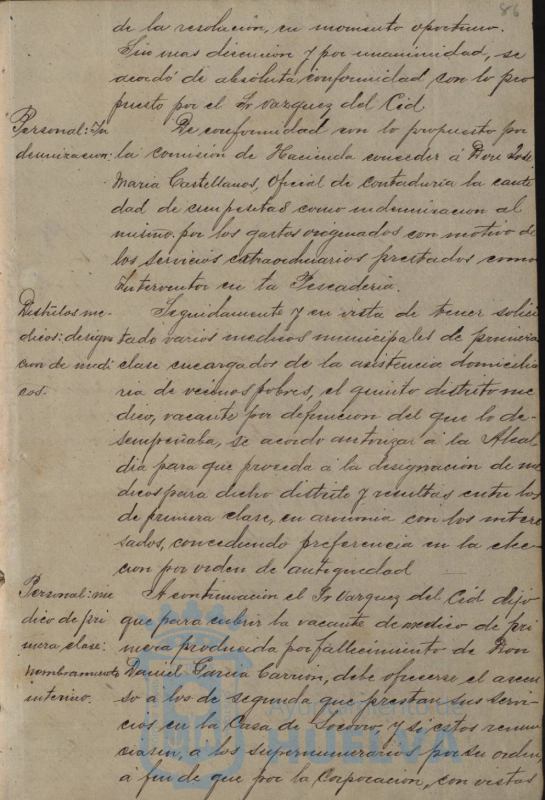 86
de la resolución, en momento oportuno.
Sin mas discusion y por unanimidad, se
acordó de absoluta conformidad con lo pro
puesto por el Sr Vazquez del Cid
Personal: In
demnizacion:
De conformidad con lo propuesto por
la comisión de Hacienda conceder á Don José
Maria Castellanos, oficial de contaduria la canti
dad de cien pesetas como indemnizacion al
mismo por los gastos originados con motivo de
los servicios extraordinarios prestados como
Interventor en la Pescaderia.
Distritos me-
dicos: designa
cion de medi
cos.
Seguidamente y en vista de tener solici
tado varios medicos municipales de primera
clase encargados de la asistencia domicilia
ria de vecinos pobres, el quinto distrito me
dico, vacante por defuncion del que lo de-
sempeñaba, se acordo autorizar á la Alcal
dia para que proceda á la designación de me
dicos para dicho distrito y resultas entre los
de primera clase, en armonia con los intere
sados, concediendo preferencia en la elec-
cion por orden de antiguedad
Personal: me
dico de pri
mera clase:
nombramiento
interino.
A continuación el Sr Vazquez del Cid dijo
que para cubrir la vacante de medico de pri
mera producida por fallecimiento de Don
Daniel Garcia Carrion, debe ofrecerse el ascen
so á los de segunda que prestan sus servi-
cios en la Casa de Socorro, y si estos renun
ciasen, á los supernumerarios por su orden,
á fin de que por la Corporacion, con vistas
AYUNTAMIENTO DE
HUELVA